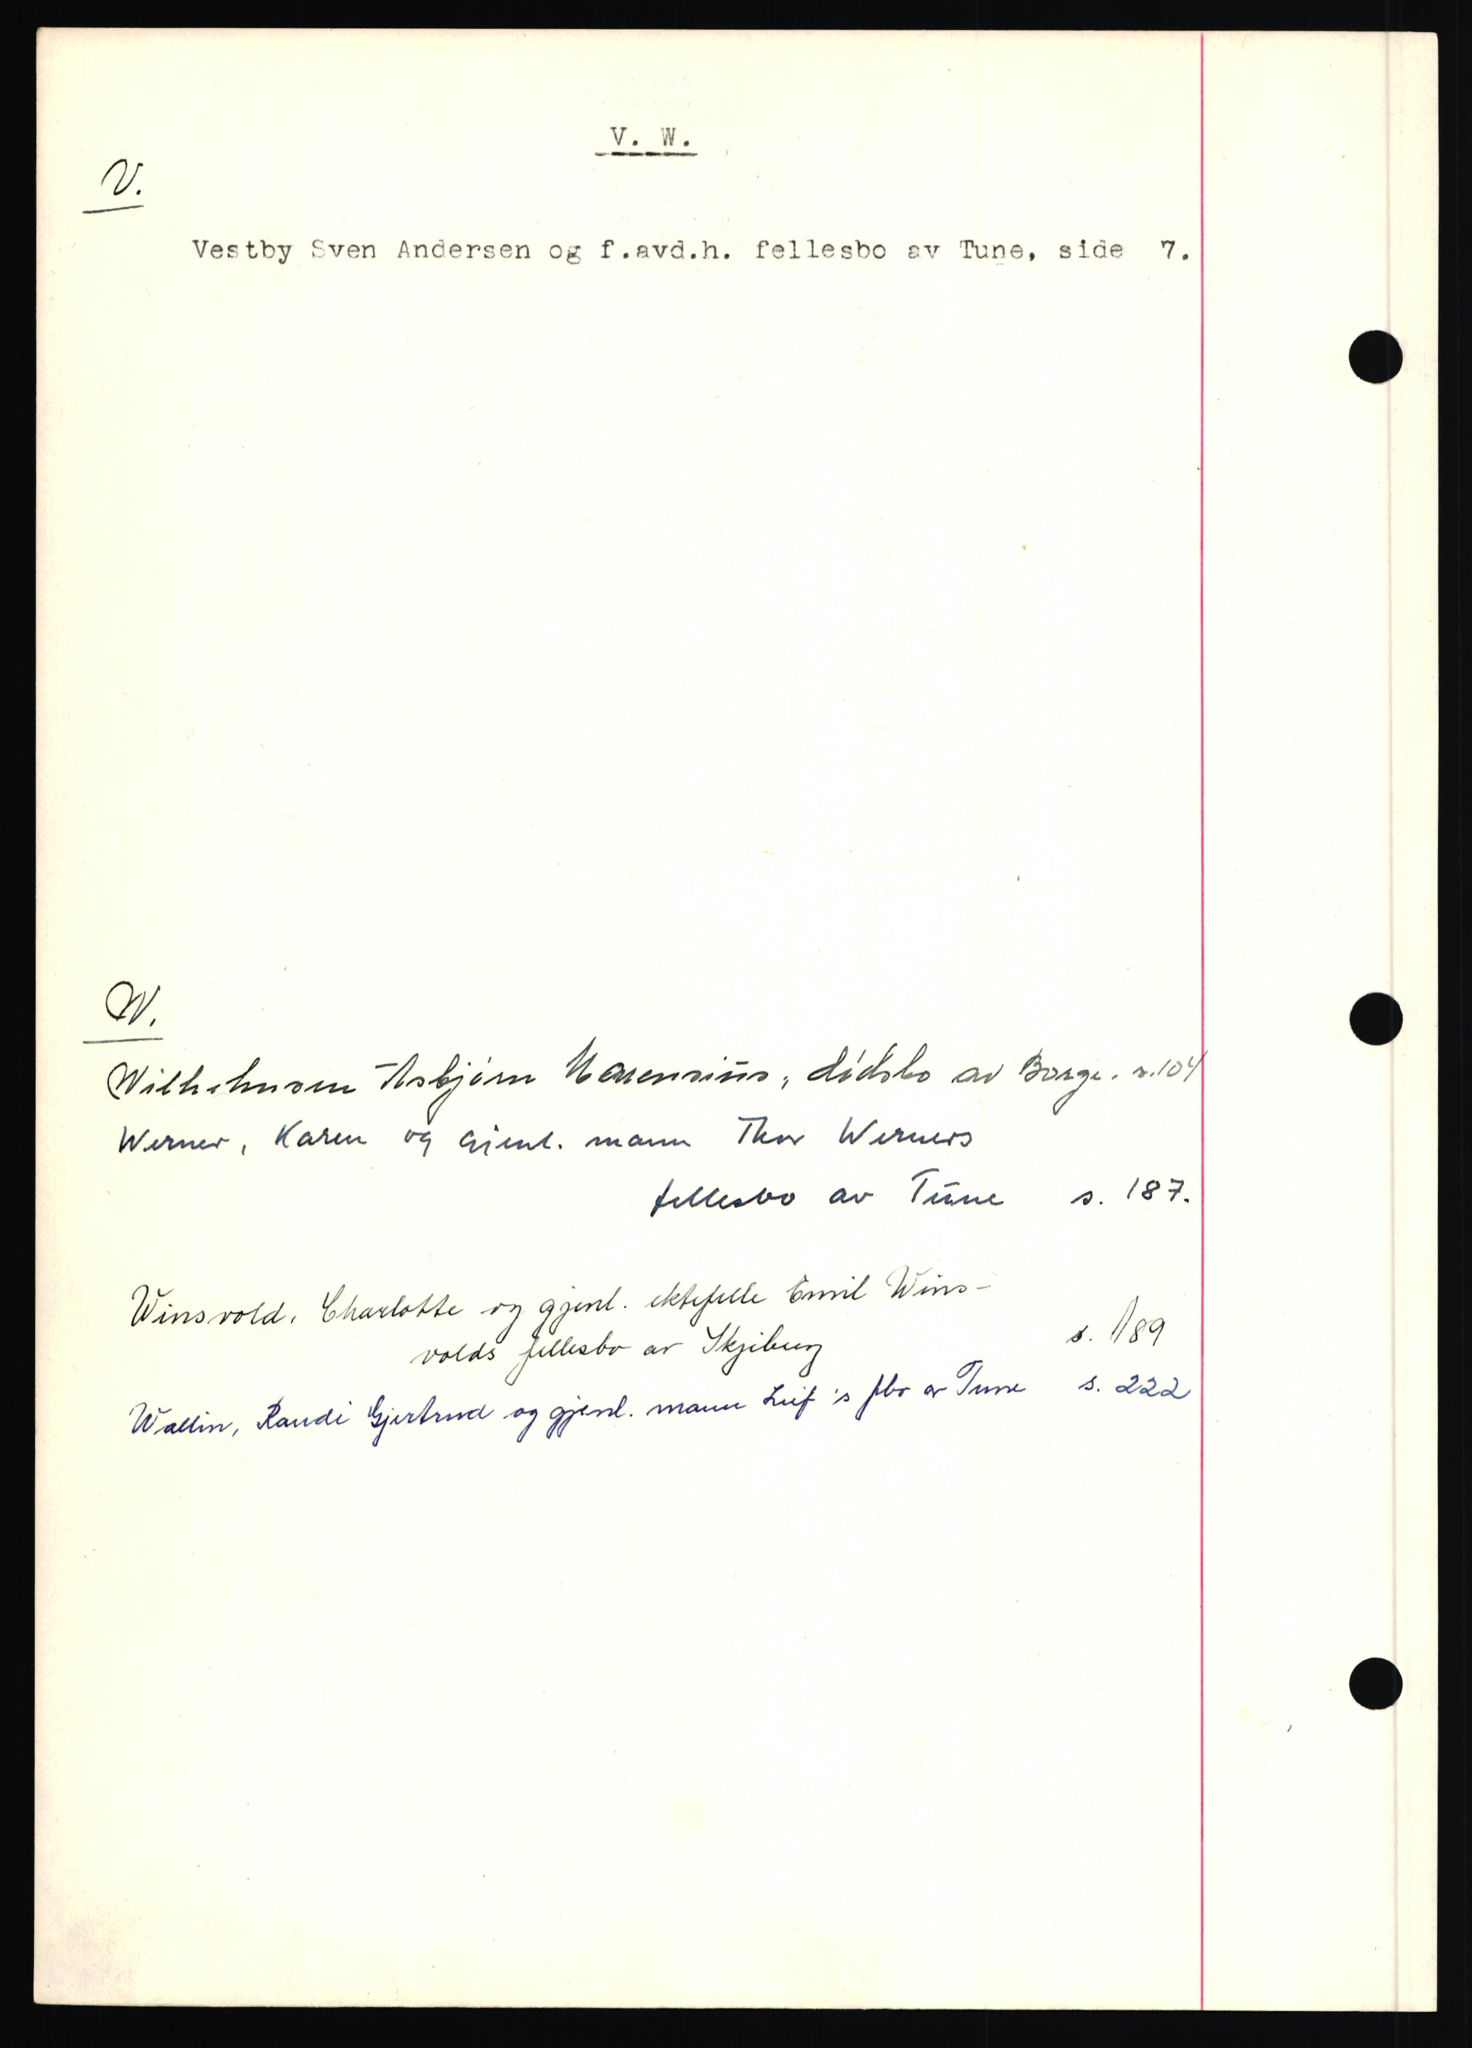 V. W.
V.
Vestby Sven Andersen og f.avd.h. fellesbo av Tune, side 7.
W.
Wilhelmsen Asbjørn Marensius, dødsbo av Borge. s.104
Werner, Karen og gjenl. mann Thor Werners
fellesbo av Tune s. 187.
Winsvold, Charlotte og gjenl. ektefelle Emil Wins-
volds fellesbo av Skjeberg s. 189
Wallin, Randi Gjertrud og gjenl. mann Leif's fbo av Tune s. 222